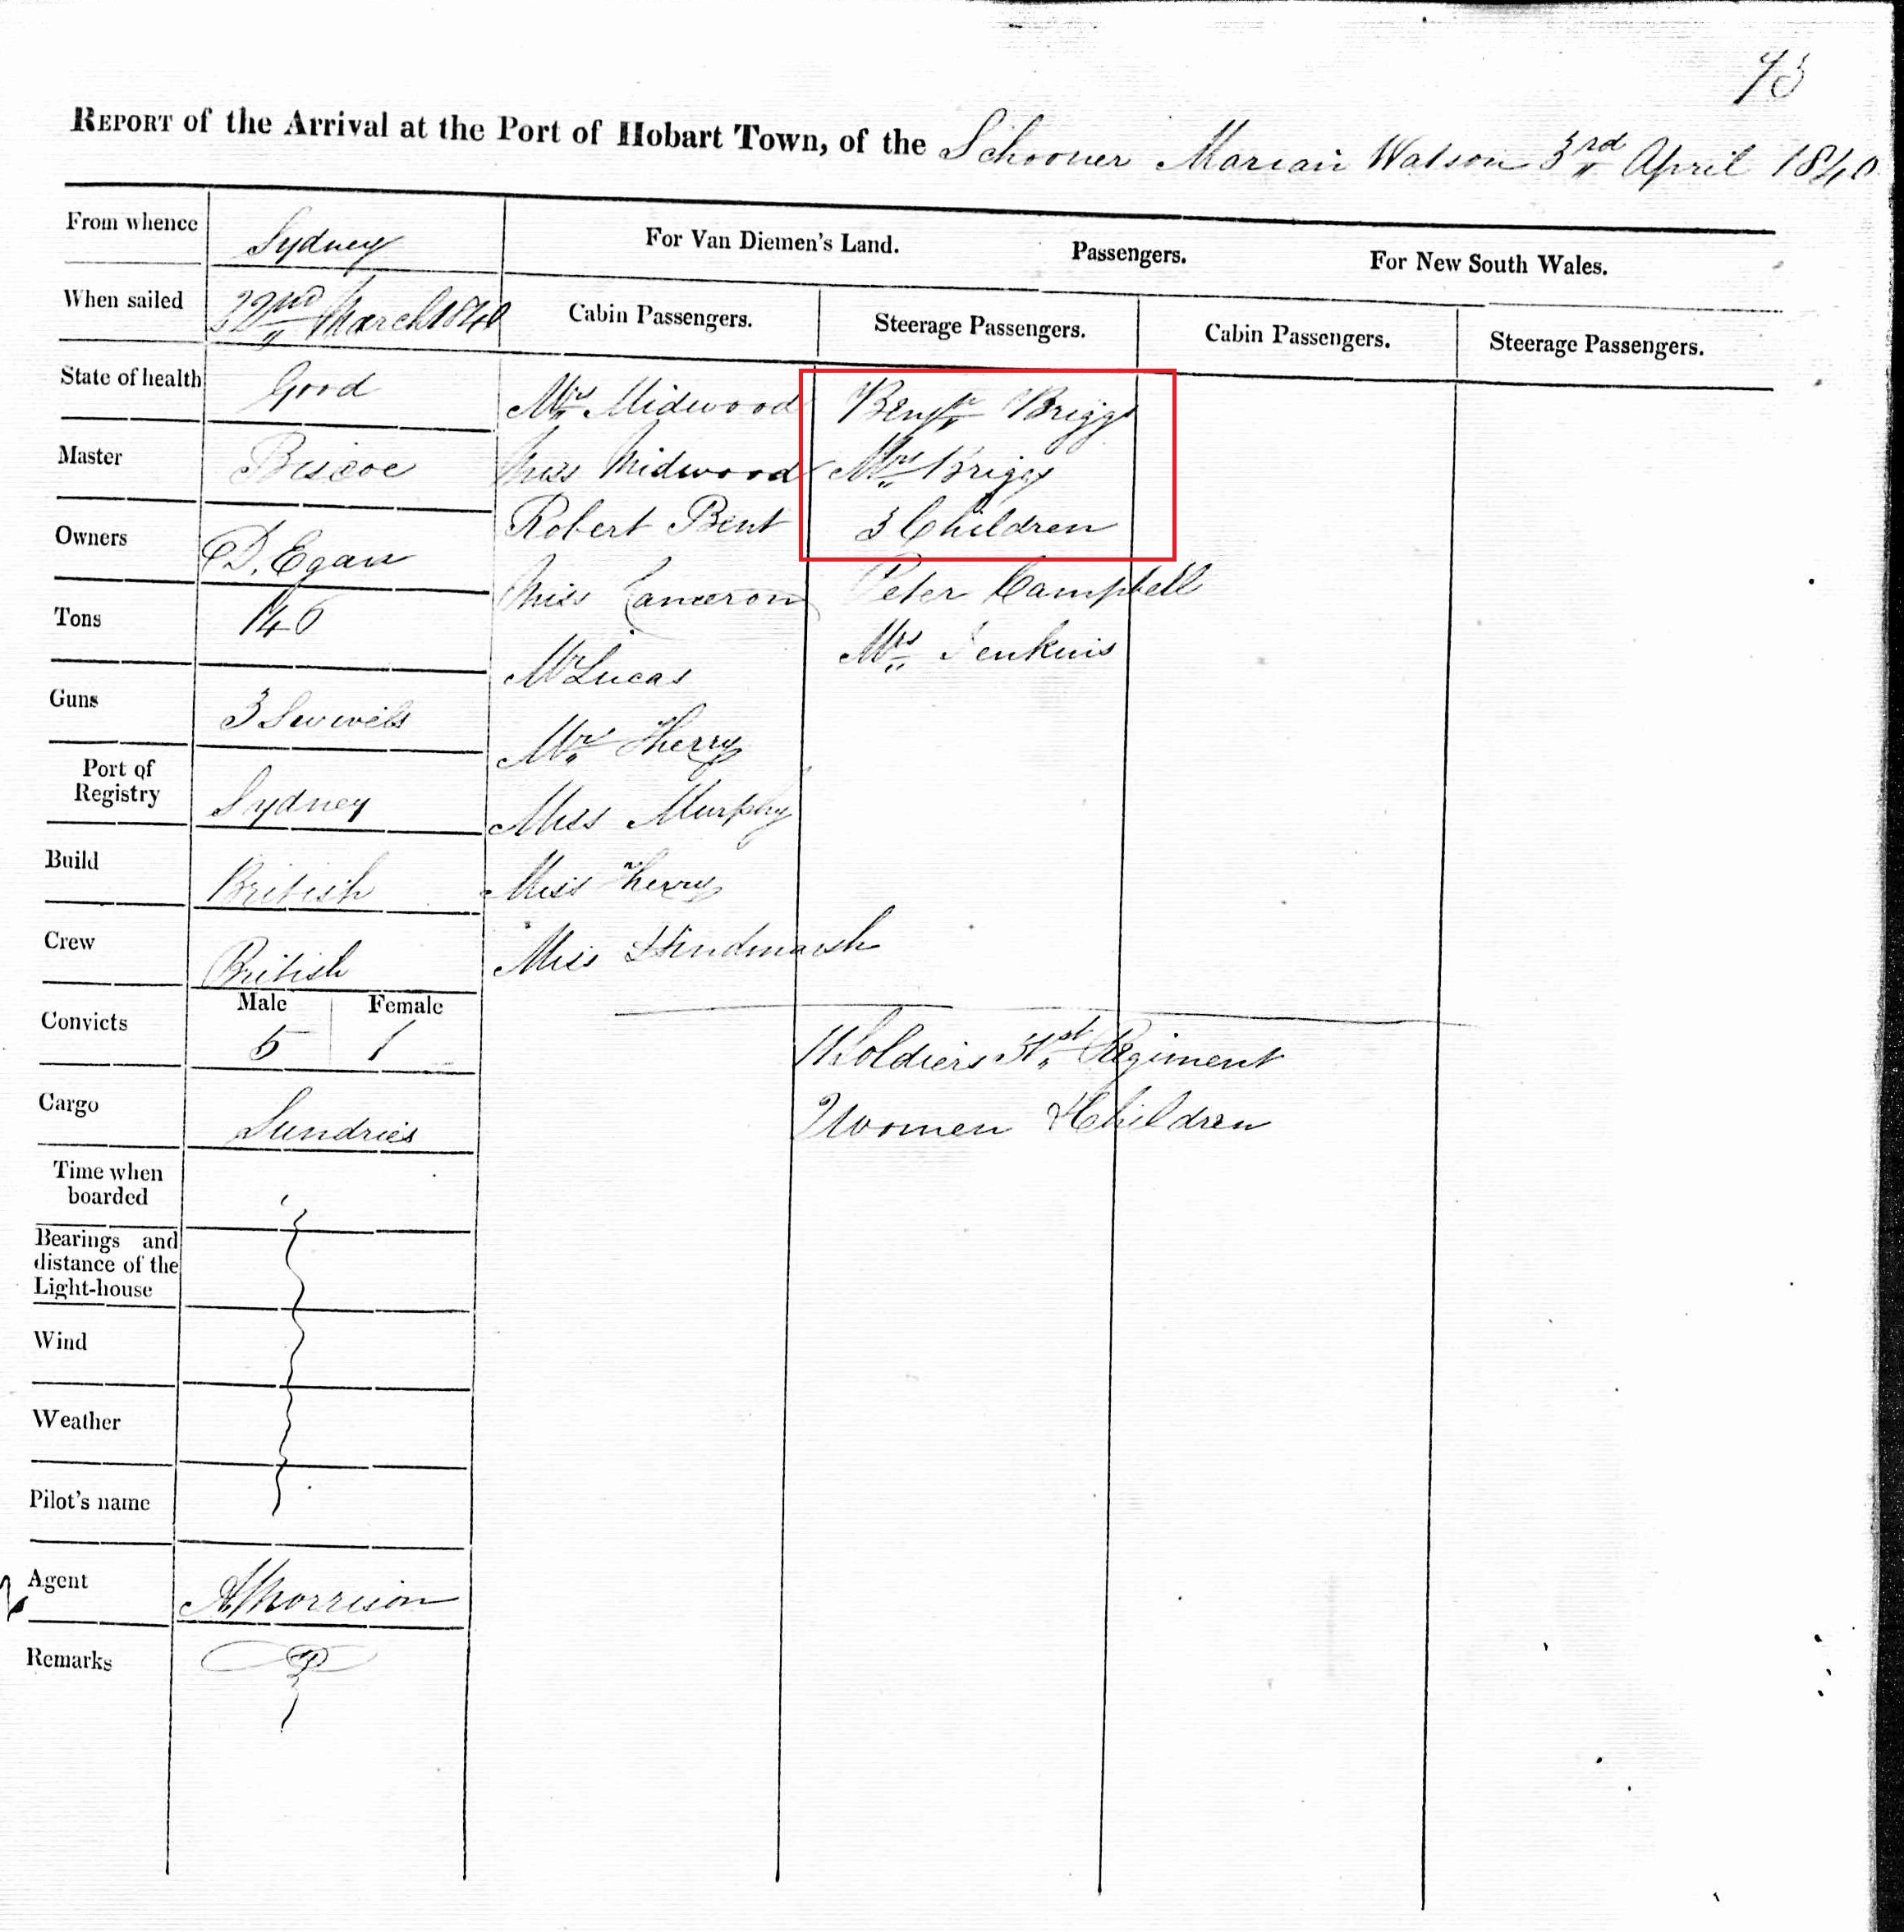 93
REPORT of the Arrival at the Port of Hobart Town, of the Schooner Marian Watson 3rd April 1840
For Van Diemen's Land. Passengers. For New South Wales.
Cabin Passengers. Steerage Passengers. Cabin Passengers. Steerage Passengers.
From whence Sydney
When sailed 22nd March 1840
State of health Good
Master Biscoe
Owners D. Egan
Tons 146
Guns 3 Swivels
Port of Registry Sydney
Build British
Crew British
Male Female
Convicts 5 1
Cargo Sundries
Time when boarded
Bearings and distance of the Light-house
Wind
Weather
Pilot's name
Agent A Morrison
Remarks
Mrs Midwood
Miss Midwood
Robert Bent
Miss Cameron
Mr Lucas
Mrs Therry
Miss Murphy
Miss Therry
Miss Hindmarsh
Benjn Briggs
Mrs Briggs
3 Children
Peter Campbell
Mrs Jenkins
11 Soldiers 51st Regiment
2 Women & Children